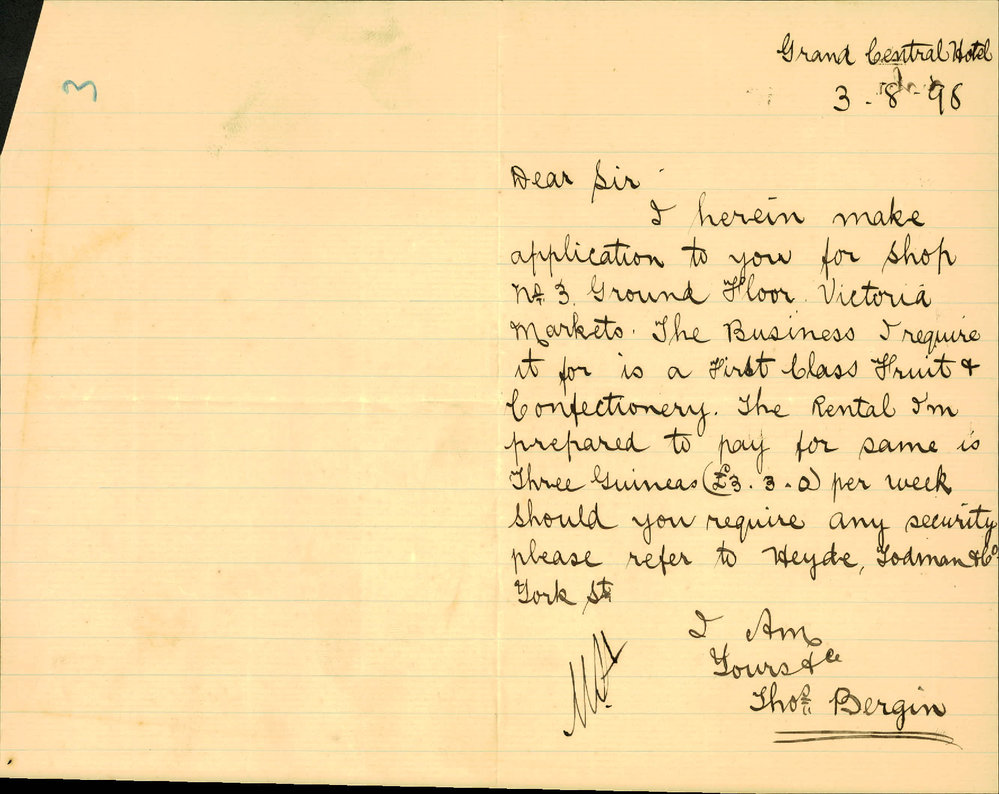 3
Grand Central Hotel
3-8-98
Dear Sir
I herein make
application to you for shop
No. 3. Ground Floor. Victoria
Markets. The Business I require
it for is a First Class Fruit &
Confectionery. The Rental I'm
prepared to pay for same is
Three Guineas (£3.3.0) per week
should you require any security
please refer to Heyde, Todman & Co
York St
I Am
Yours &ce
Thos Bergin